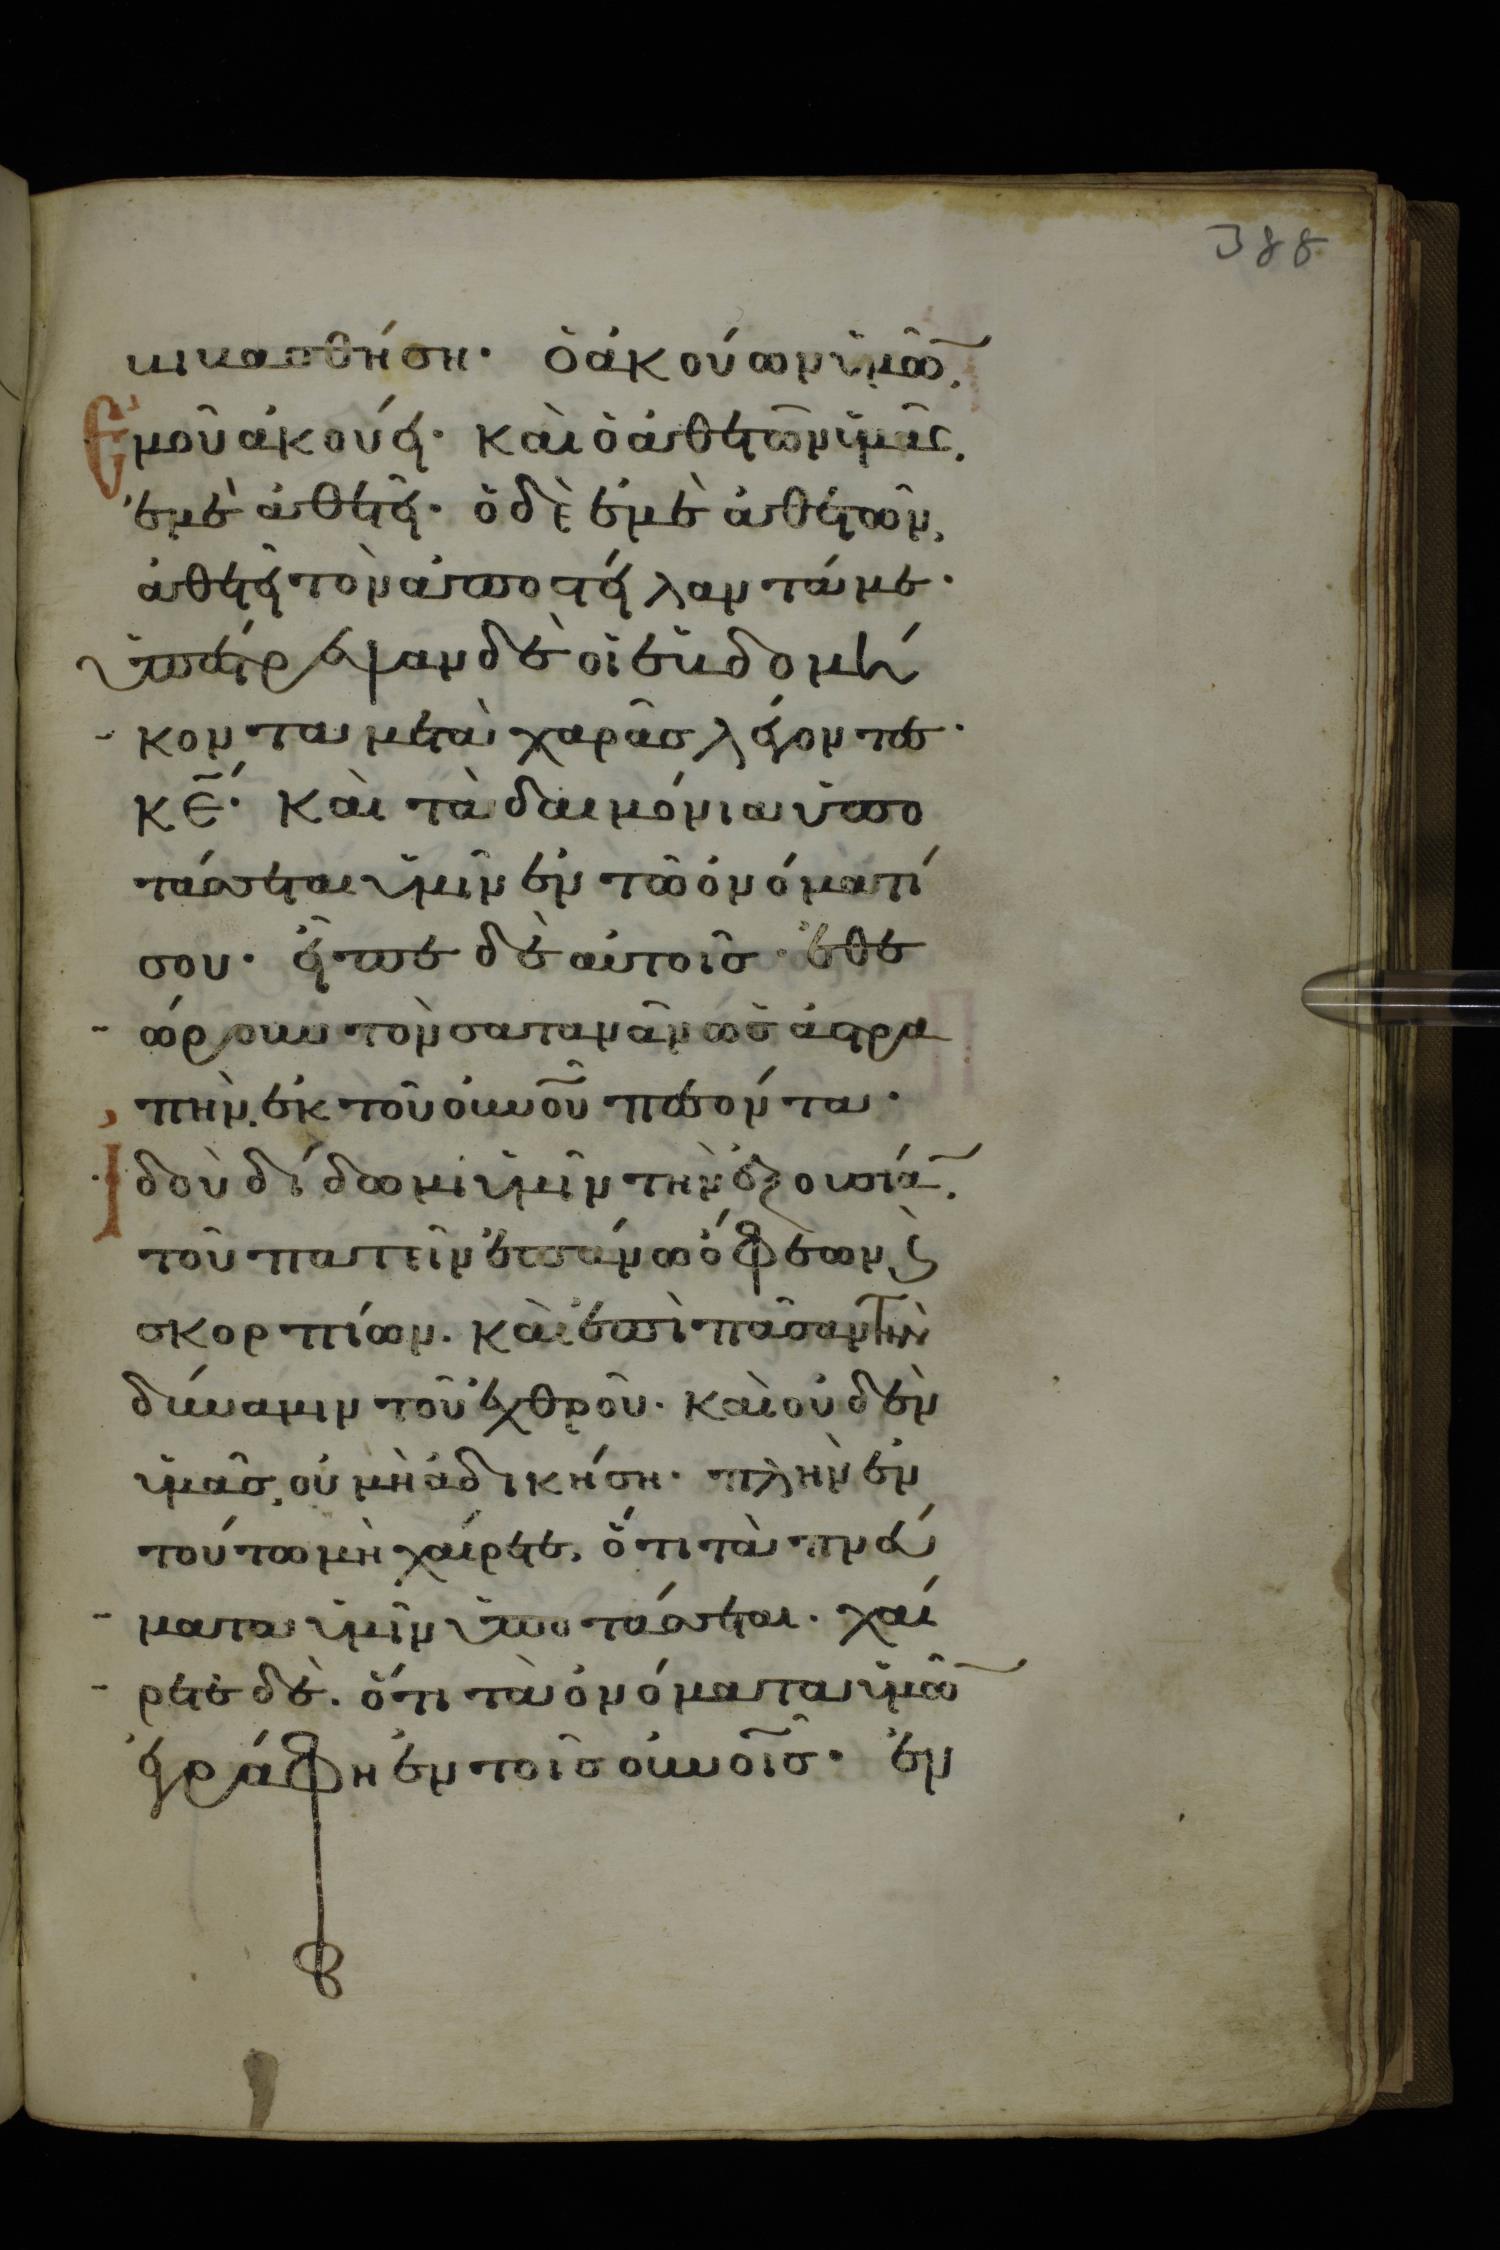 388
βιβασθήση· ὁ ἀκούων ὑμῶ̅,
Ἐμοῦ ἀκούει· καὶ ὁ ἀθετῶν ὑμᾶς,
ἐμὲ ἀθετεῖ· ὁ δὲ ἐμὲ ἀθετῶν,
ἀθετεῖ τὸν ἀποστείλαντά με·
ὑπέστρεψαν δὲ οἱ ἑβδομή
κοντα μετὰ χαρᾶς λέγοντες·
κ̅ε̅· καὶ τὰ δαιμόνια ὑπο
τάσσεται ὑμῖν ἐν τῶ ὀνόματί
σου· εἶπε δὲ αὐτοῖς· ἐθε
ώρουν τὸν σατανᾶν ὡς ἀστρα
πὴν, ἐκ τοῦ ο̅υ̅ν̅ο̅ῦ̅ πεσόντα·
Ἰδοὺ δίδωμι ὑμῖν τὴν ἐξουσία̅,
τοῦ πατεῖν ἐπάνω ὄφεων, ϗ
σκορπίων. καὶ ἐπὶ πᾶσαν τὴν
δύναμιν τοῦ ἐχθροῦ· καὶ οὐδὲν
ὑμᾶς, οὐ μὴ ἀδικήση· πλὴν ἐν
τούτω μὴ χαίρετε, ὅτι τὰ πνεύ
ματα ὑμῖν ὑποτάσσεται· χαί
ρετε δὲ. ὅτι τὰ ὀνόματα ὑμῶ̅
ἐγράφη ἐν τοῖς οὐνοῖς· ἐν